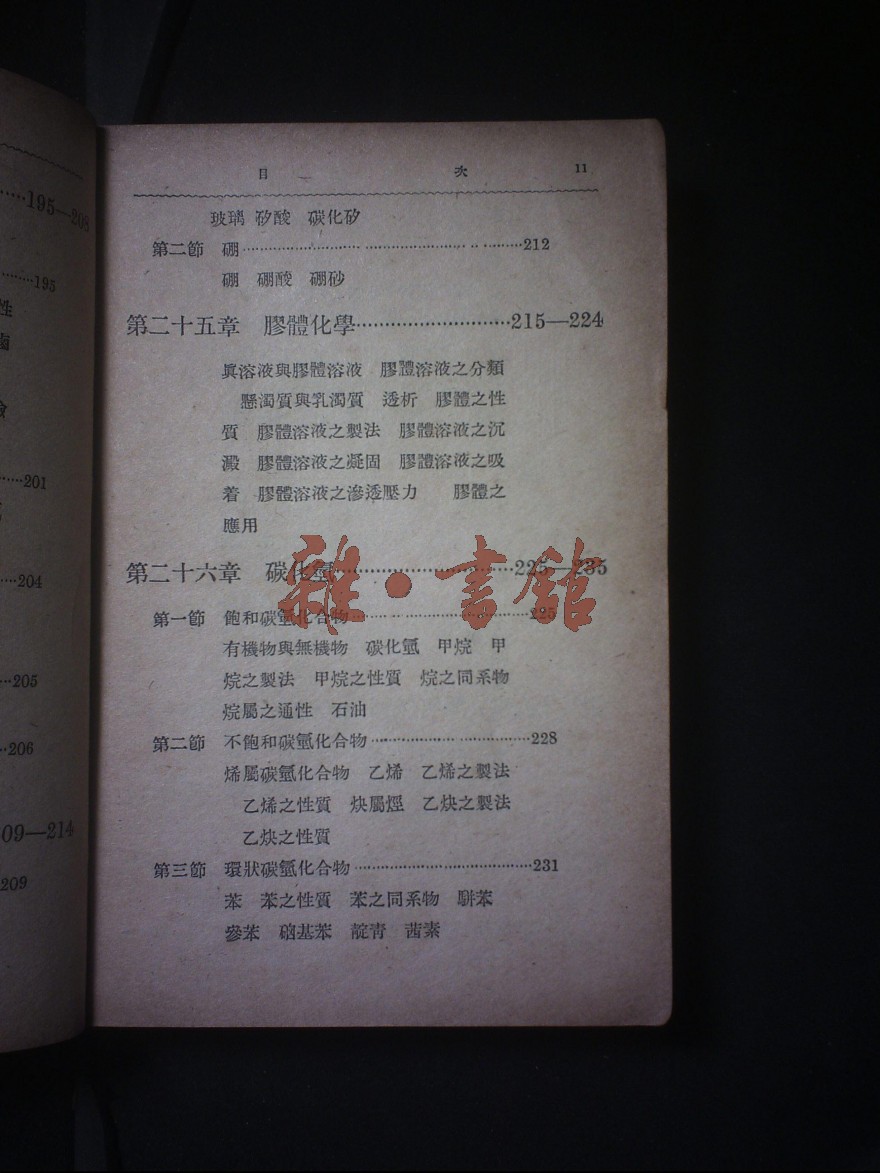 195—208
195
性
201
204
205
206
209—214
209
目 次 11
玻璃 矽酸 碳化矽
第二節 硼……………………………………212
硼 硼酸 硼砂
第二十五章 膠體化學………………………215—224
眞溶液與膠體溶液 膠體溶液之分類
懸濁質與乳濁質 透析 膠體之性
質 膠體溶液之製法 膠體溶液之沉
澱 膠體溶液之凝固 膠體溶液之吸
着 膠體溶液之滲透壓力 膠體之
應用
第二十六章 碳化氫…………………………225—235
第一節 飽和碳氫化合物……………………225
有機物與無機物 碳化氫 甲烷 甲
烷之製法 甲烷之性質 烷之同系物
烷屬之通性 石油
第二節 不飽和碳氫化合物…………………228
烯屬碳氫化合物 乙烯 乙烯之製法
乙烯之性質 炔屬烴 乙炔之製法
乙炔之性質
第三節 環狀碳氫化合物……………………231
苯 苯之性質 苯之同系物 駢苯
參苯 硝基苯 靛青 茜素
雜·書館